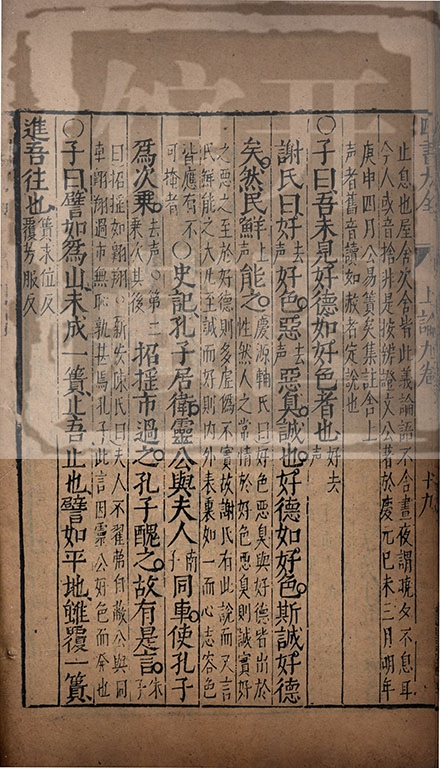 四書大全 上論九卷 十九
止息也屋舍次舍皆此義論語不舍晝夜謂曉夕不息耳
今人或音捨非是按辨證文公著於慶元己未三月明年
庚申四月公易簀矣集註舍上
聲者舊音讀如赦者定說也
○子曰吾未見好德如好色者也好去聲
謝氏曰好去聲好色惡去聲惡臭誠也好德如好色斯誠好德
矣然民鮮上聲能之慶源輔氏曰好色惡臭與好德皆出於
性然人之常情於好色惡臭則誠實好
之惡之至於好德則多虛僞不實故謝氏有此說而又言
民鮮能之大凡至誠而好則內外表裏如一而心志容色
皆應有不
可掩者○史記孔子居衛靈公與夫人南子同車使孔子
爲次乘去聲○第二
乘次其後招搖市過之孔子醜之故有是言朱子
曰招搖如翱翔○新安陳氏曰夫人不翟茀自蔽公與同
車翱翔過市無恥孰甚焉孔子此言因靈公好色而發也
○子曰譬如爲山未成一簣止吾止也譬如平地雖覆一簣
進吾往也簣求位反
覆芳服反